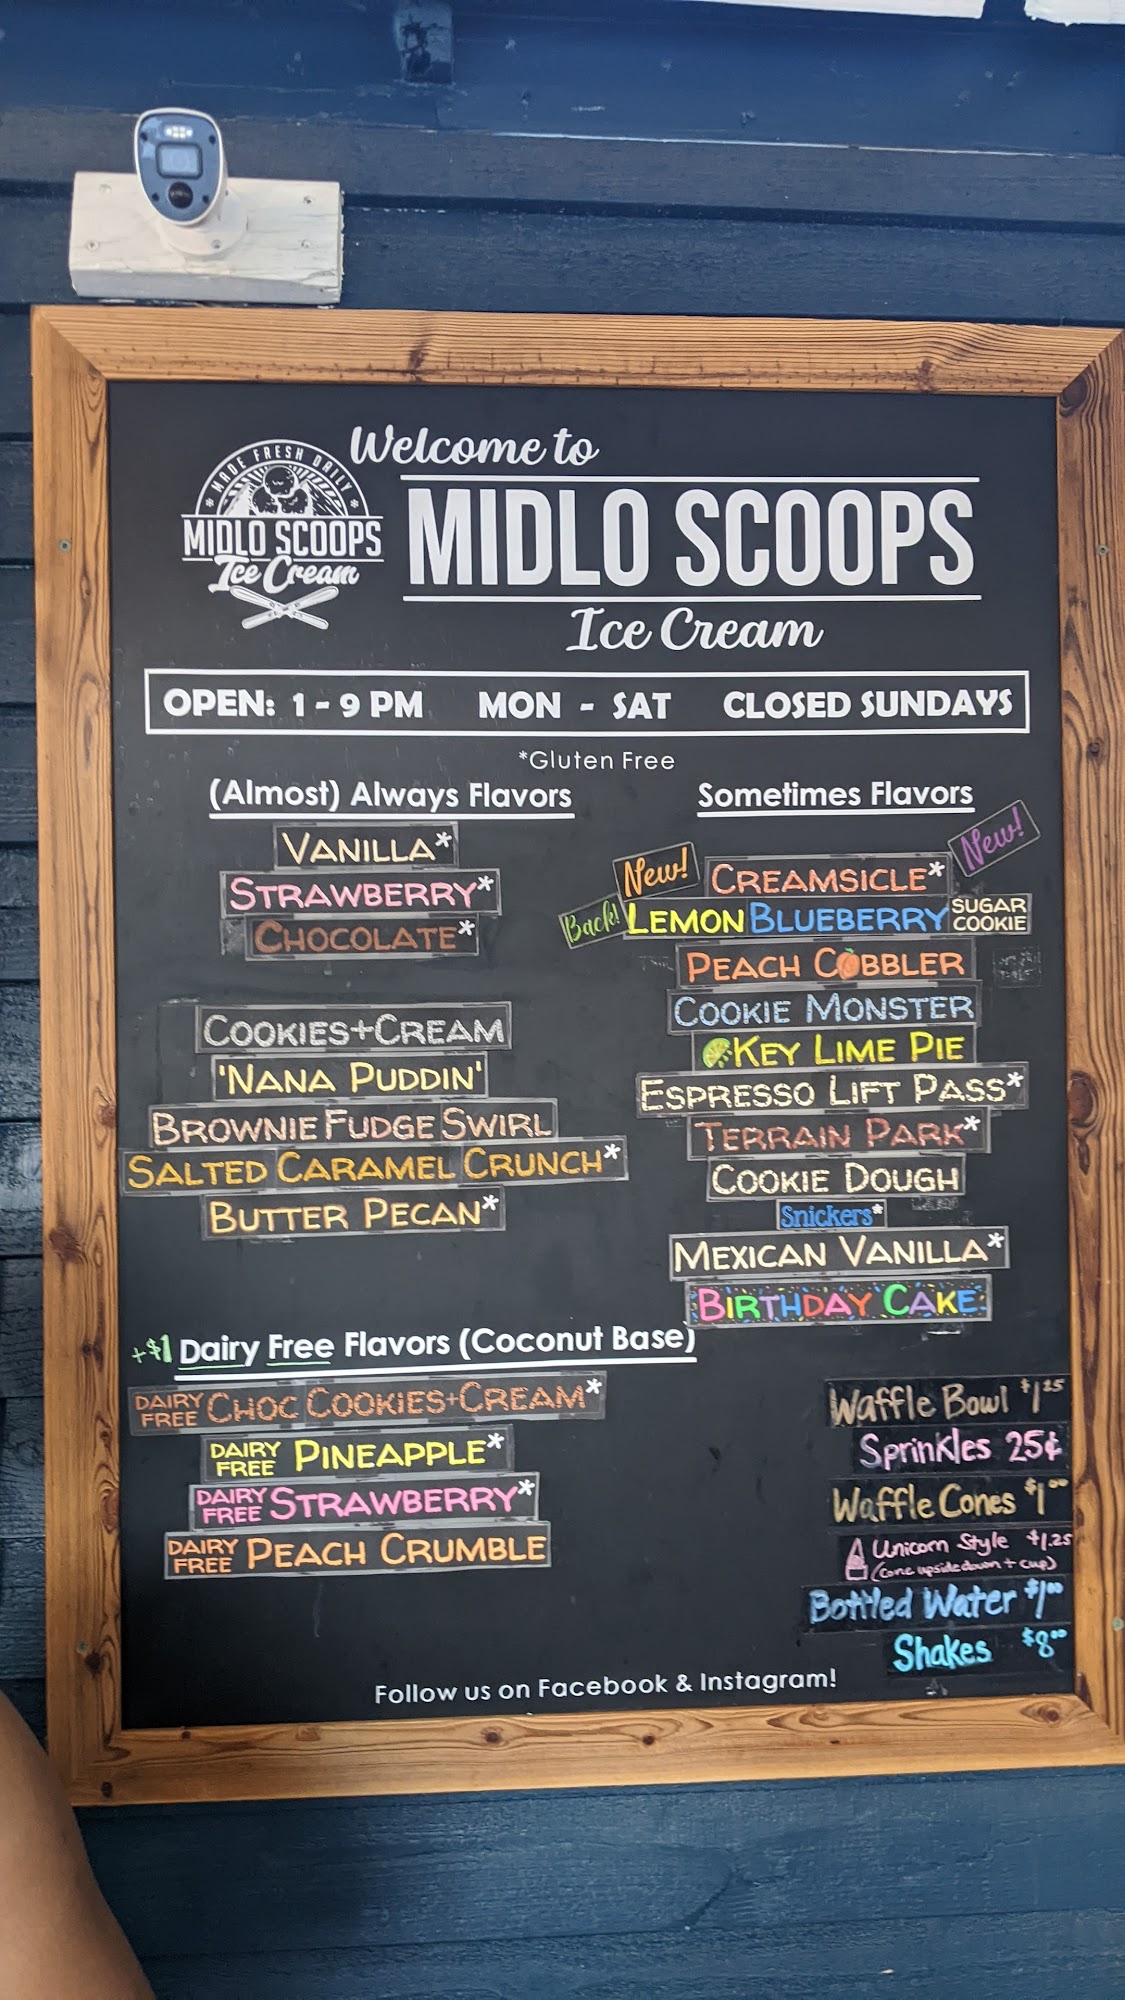 Welcome to
MADE FRESH DAILY
MIDLO SCOOPS
Ice Cream
MIDLO SCOOPS
Ice Cream
OPEN: 1 - 9 PM MON - SAT CLOSED SUNDAYS
*Gluten Free
(Almost) Always Flavors
VANILLA*
STRAWBERRY*
CHOCOLATE*
COOKIES+CREAM
'NANA PUDDIN'
BROWNIE FUDGE SWIRL
SALTED CARAMEL CRUNCH*
BUTTER PECAN*
Sometimes Flavors
New! CREAMSICLE* New!
Back! LEMON BLUEBERRY SUGAR COOKIE
PEACH COBBLER
COOKIE MONSTER
KEY LIME PIE
ESPRESSO LIFT PASS*
TERRAIN PARK*
COOKIE DOUGH
Snickers*
MEXICAN VANILLA*
BIRTHDAY CAKE
+$1 Dairy Free Flavors (Coconut Base)
DAIRY FREE CHOC COOKIES+CREAM*
DAIRY FREE PINEAPPLE*
DAIRY FREE STRAWBERRY*
DAIRY FREE PEACH CRUMBLE
Waffle Bowl $1.25
Sprinkles 25¢
Waffle Cones $1.00
Unicorn Style $1.25
(cone upside down + cup)
Bottled Water $1.00
Shakes $8.00
Follow us on Facebook & Instagram!